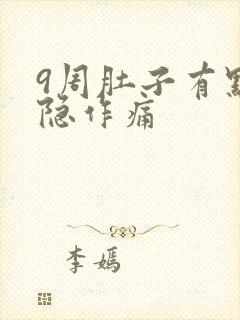 9周肚子有點
隐作痛
李嫣